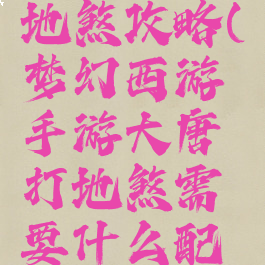 地煞攻略(
梦幻西游
手游大唐
打地煞需
要什么配